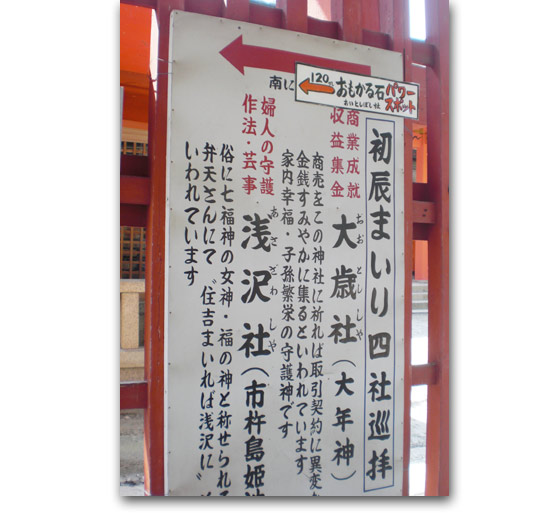 南に
120m
おもかる石
おいとしぼし社
パワー
スポット
初辰まいり四社巡拝
商業成就
収益集金
大歳社(大年神)
おおとししや
商売をこの神社に祈れば取引契約に異変
金銭すみやかに集るといわれています
家内幸福・子孫繁栄の守護神です
婦人の守護
作法・芸事
浅沢社(市杵島姫
あさざわしや
俗に七福神の女神・福の神と称せられる
弁天さんにて〝住吉まいれば浅沢に〟
いわれています